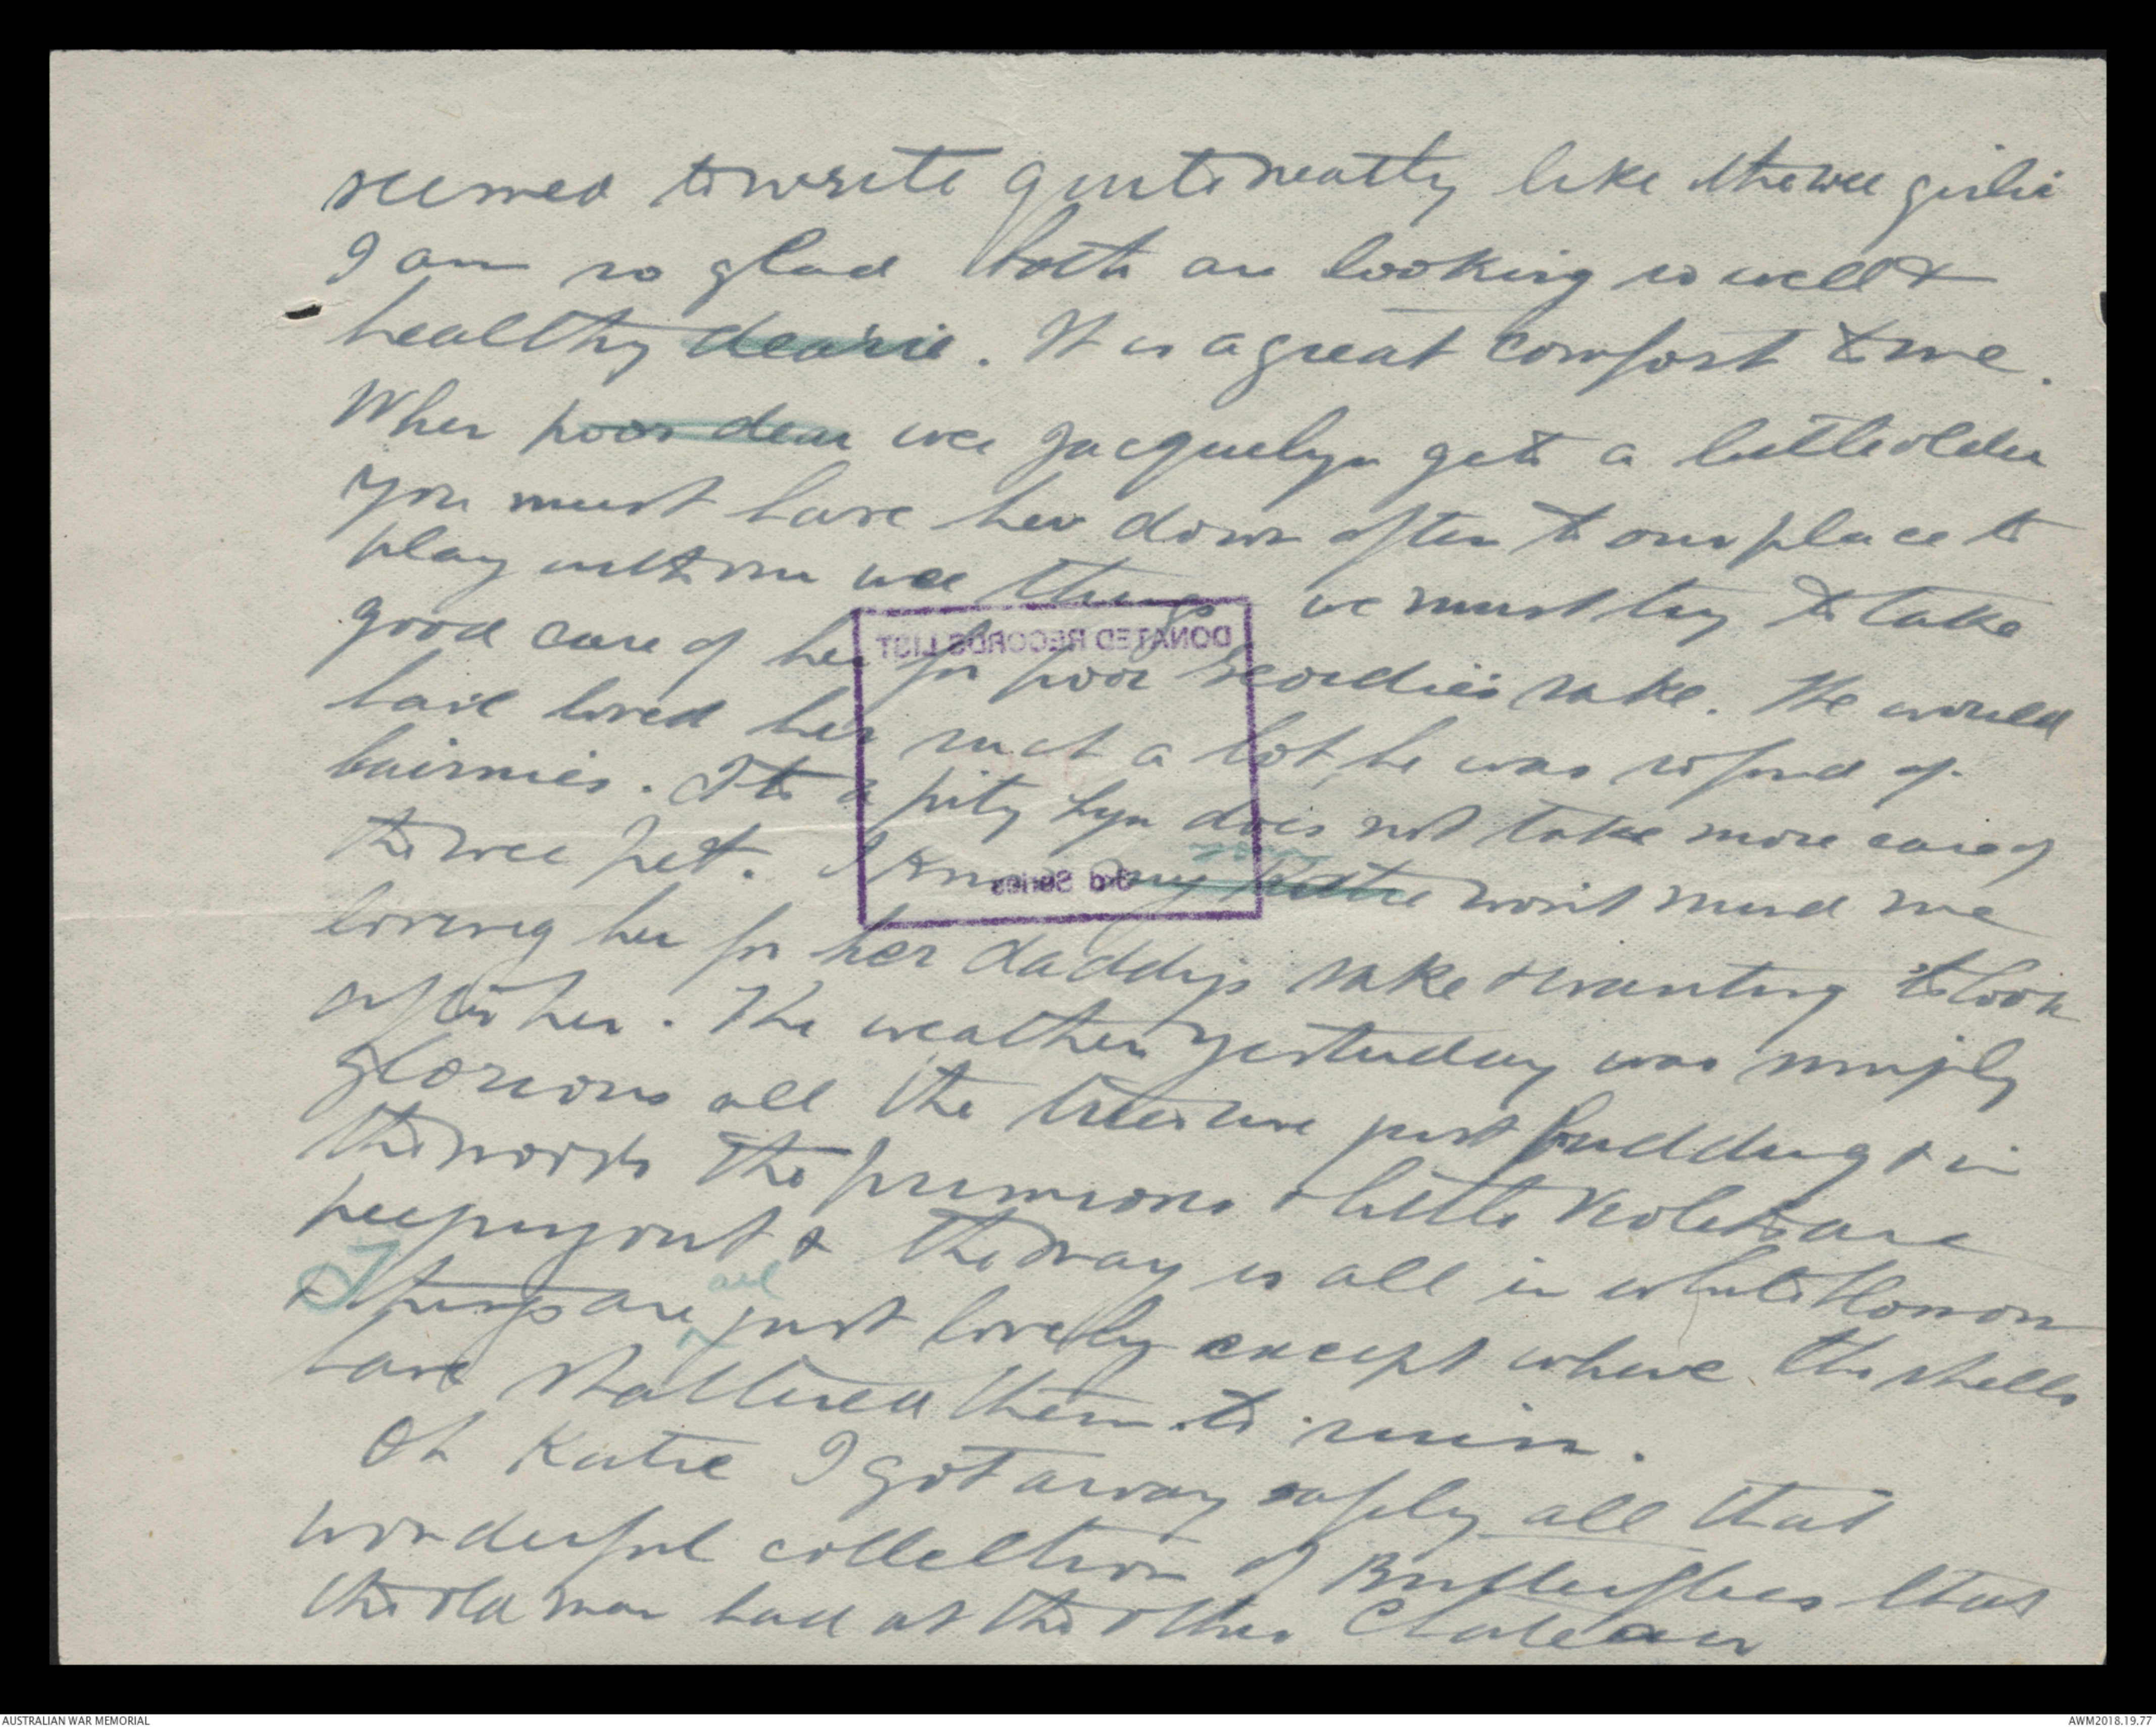 seemed to write quite neatly like the wee girlie
I am so glad both are looking so well &
healthy dearie. It is a great comfort to me.
When poor dear wee Jacquelyn gets a little older
you must have her down often to our place to
play with our wee things we must try to take
good care of her for poor Geordie's sake. He would
have loved her such a lot, he was so fond of
bairnies. Its a pity Lyn does not take more care of
the wee pet. I know my Katie won't mind me
you
loving her for her daddy's sake & wanting to look
after her. The weather yesterday was simply
glorious all the trees are just budding & in
the woods the primroses & little violets are
peeping out & the may is all in white blossom
& things are all just lovely except where the shells
T
have shattered them to ruin.
Oh Katie I got away safely all that
wonderful collection of Butterflies that
the old man had at the other Chateau
DONATED RECORDS LIST
3rd Series
AUSTRALIAN WAR MEMORIAL
AWM2018.19.77